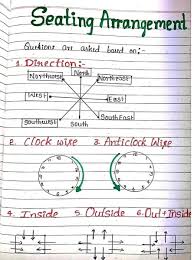 Seating Arrangement
Questions are asked based on:-
1. Direction:-
Northwest North NorthEast
West East
Southwest South SouthEast
2. Clock wise 3. Anticlock Wise
4. Inside 5. Outside 6. Out+Inside